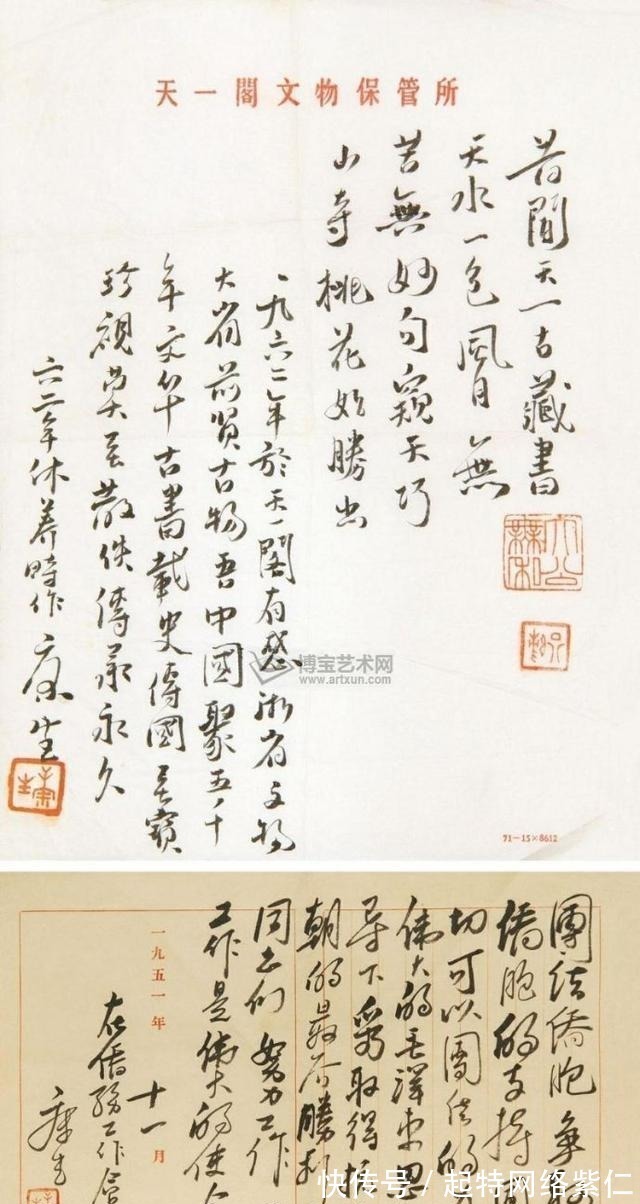 天一閣文物保管所
昔聞天一古藏書
天水一色風月無
苦無妙句窺天巧
山寺桃花始勝出
一九六二年於天一閣有感浙省文物
大省前賢古物吾中國聚五千
年文華古書載史傳國之寶
珍視莫至散佚傳承永久
六二年休養時作 康生
博宝艺术网
www.artxun.com
71-15×8612
團结僑胞爭
僑胞的支持
切可以團结的
偉大的毛澤東思
导下爭取得
朝的最后勝利
同志们 努力工作
工作是偉大的使
一九五一年十一月
在僑務工作會
康生
快传号/起特网络紫仁